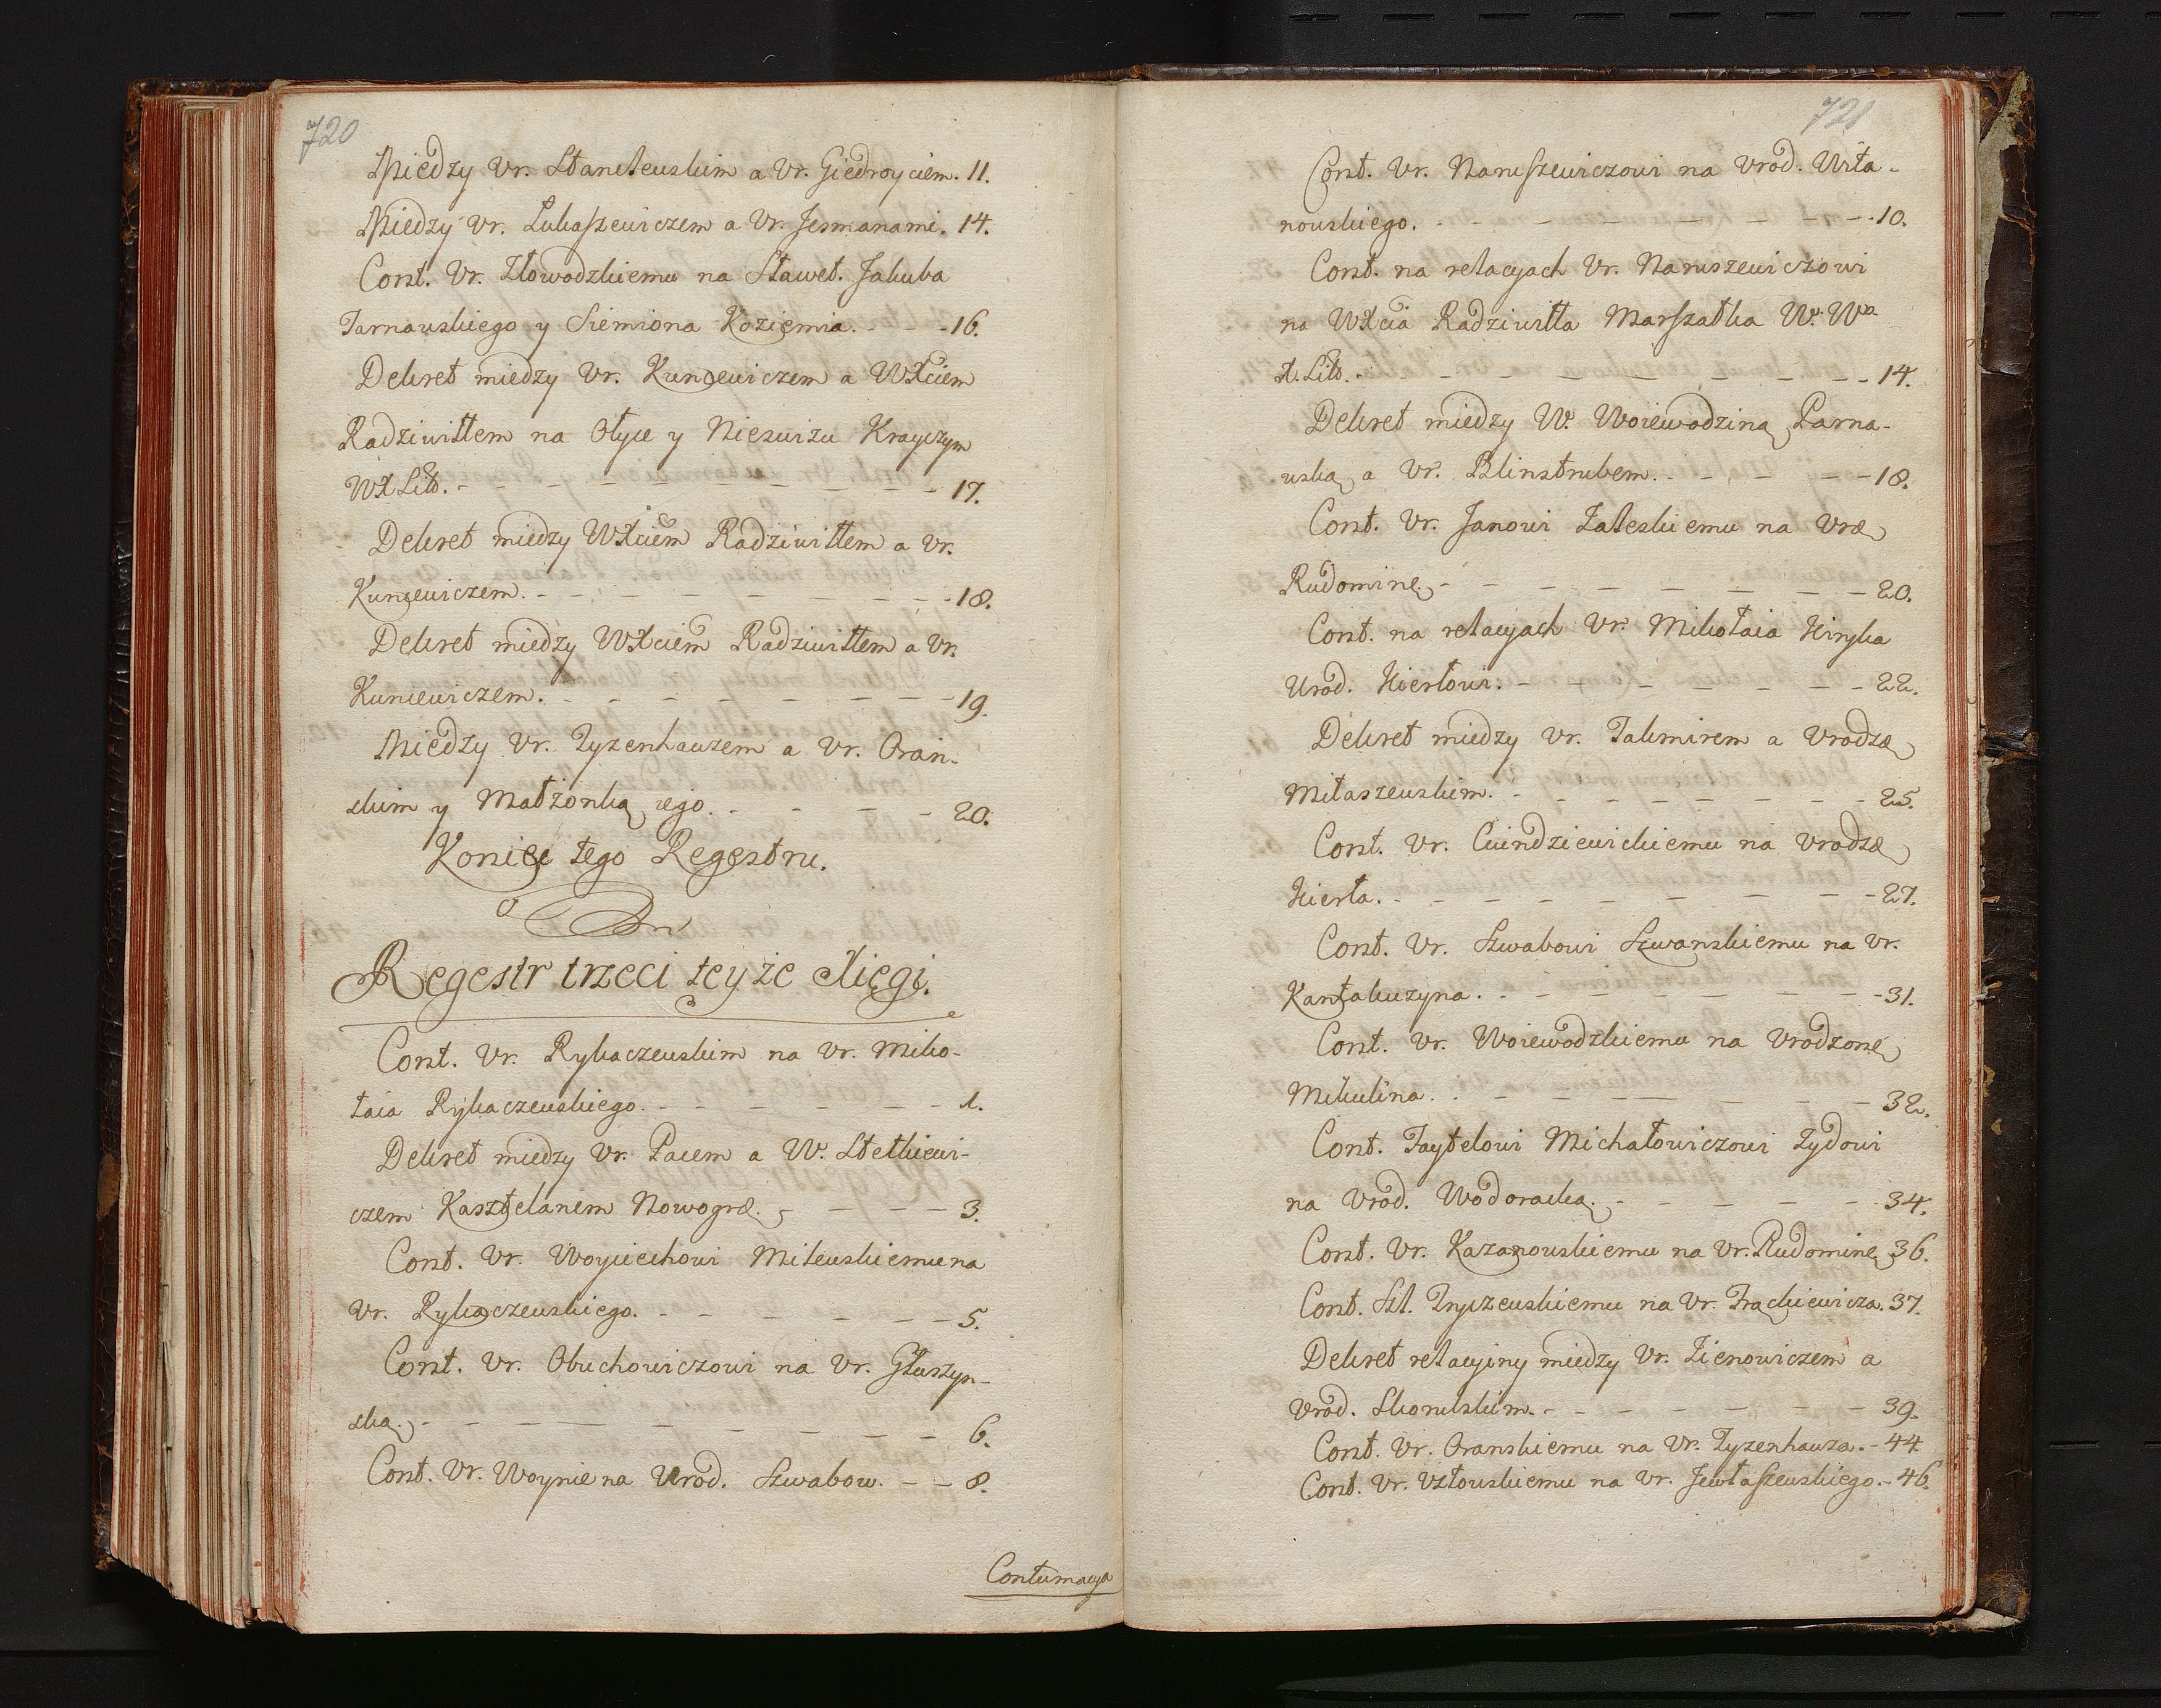 720
Między Ur. Stanclewskim a Ur. Giedroyciem. 11.
Między Ur. Łukaszewiczem a Ur. Jesmanami. 14.
Cont. Ur. Złowodzkiemu na Sławet. Jakuba
Tarnawskiego y Siemiona Koziemia. - - - 16.
Dekret między Ur. Kuncewiczem a WXciem
Radziwiłłem na Ołyce y Nieswizu Krayczym
WXLitt. - - - - - - - - - 17.
Dekret między WXciem Radziwiłłem a Ur.
Kuncewiczem. - - - - - - - - 18.
Dekret między WXciem Radziwiłłem a Ur.
Kuncewiczem. - - - - - - - - 19.
Między Ur. Zyzenhauzem a Ur. Orań-
skim y Małżonką iego. - - - - 20.
Koniec tego Regestru.
Regestr trzeci teyże Xięgi.
Cont. Ur. Rykaczewskim na Ur. Miko-
łaia Rykaczewskiego. - - - - - - 1.
Dekret między Ur. Pacem a W. Stetkiewi-
czem Kasztelanem Nowogrd. - - - - 3.
Cont. Ur. Woyciechowi Milewskiemu na
Ur. Rykaczewskiego. - - - - - - 5.
Cont. Ur. Obuchowiczowi na Ur. Głuszyn-
ską. - - - - - - - - - 6.
Cont. Ur. Woynie na Urod. Szwabow. - - 8.
Contumacya
721
Cont. Ur. Naruszewiczowi na Urod. Wita-
nowskiego. - - - - - - - - - 10.
Cont. na relacyach Ur. Naruszewiczowi
na WXcia Radziwiłła Marszałka W. Wa
X. Litt. - - - - - - - - - - 14.
Dekret między W. Woiewodziną Parna-
wską a Ur. Blinstrubem. - - - - - 18.
Cont. Ur. Janowi Zaleskiemu na Urdę
Rudominę. - - - - - - - - 20.
Cont. na relacyach Ur. Mikołaia Kiryka
Urod. Kierłowi. - - - - - - - 22.
Dekret między Ur. Talimirem a Urodzę
Miłaszewskim. - - - - - - - - 25.
Cont. Ur. Cwindziewickiemu na Urodzę
Kierła. - - - - - - - - - 27.
Cont. Ur. Szwabowi Szwanskiemu na Ur.
Kantakuzyna. - - - - - - - - 31.
Cont. Ur. Woiewodzkiemu na Urodzonę
Mikulina. - - - - - - - - 32.
Cont. Faytelowi Michałowiczowi Żydowi
na Urod. Wodoracką. - - - - - - 34.
Cont. Ur. Kazanowskiemu na Ur. Rudominę 36.
Cont. Szl. Tryczewskiemu na Ur. Frąckiewicza. 37.
Dekret relacyiny między Ur. Zienowiczem a
Urod. Skorulskim. - - - - - - - 39.
Cont. Ur. Oranskiemu na Ur. Zyzenhauza. - 44.
Cont. Ur. Uzłowskiemu na Ur. Jewłaszewskiego. - 46.